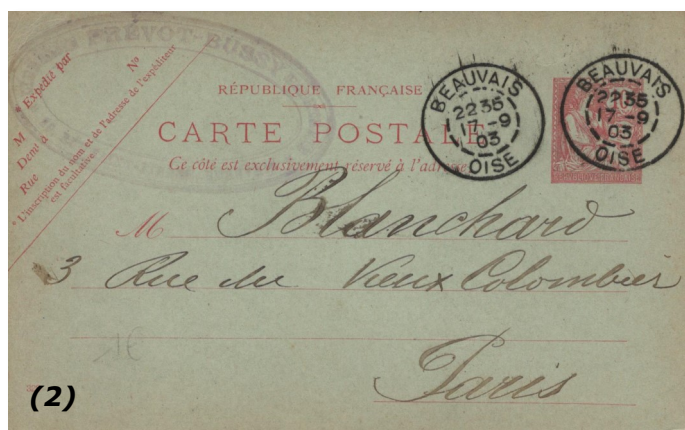 PREVOT-BUSSY
Expédié par
N°
M
Demt à
Rue
L'inscription du nom et de l'adresse de l'expéditeur
est facultative.
RÉPUBLIQUE FRANÇAISE
CARTE POSTALE
Ce côté est exclusivement réservé à l'adresse
BEAUVAIS
22 35
17 -9
03
OISE
BEAUVAIS
22 35
17 -9
03
OISE
M Blanchard
3 Rue du Vieux Colombier
Paris
(2)